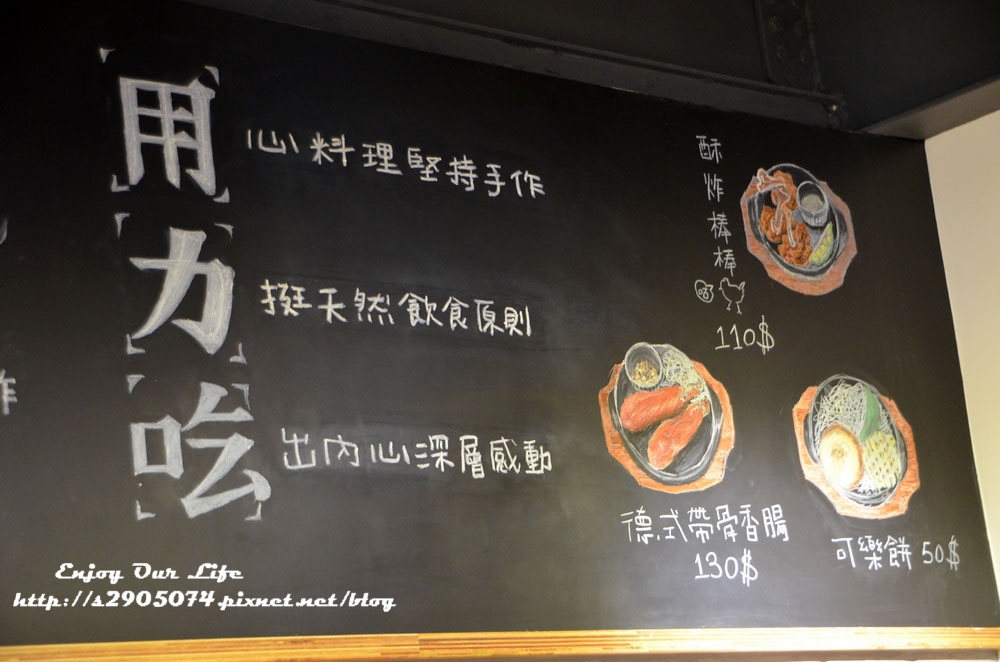 用心料理堅持手作
力挺天然飲食原則
吃出內心深層感動
酥炸棒棒
110$
德式帶骨香腸
130$
可樂餅 50$
Enjoy Our Life
http://s2905074.pixnet.net/blog